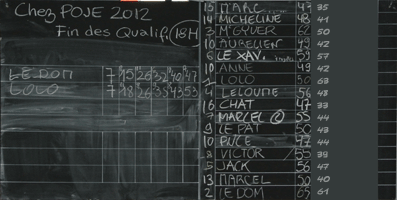 Chez POJE 2012
Fin des Qualif. 18H
LE DOM 7 15 26 32 40 47
LOLO 7 18 26 35 43 53
15 MARC 47 35
14 MICHELINE 48 41
3 Mc GYVER 62 50
10 AURELIEN 49 42
6 LE XAV. 59 57
10 ANNE 49 42
LOLO 50 63
4 LELOUNE 56 48
16 CHAT 47 33
7 MARCEL 55 44
9 LE PAT 50 43
10 PUCE 47 44
8 VICTOR 55 39
5 JACK 56 47
13 MARCEL 50 40
2 LE DOM 65 61